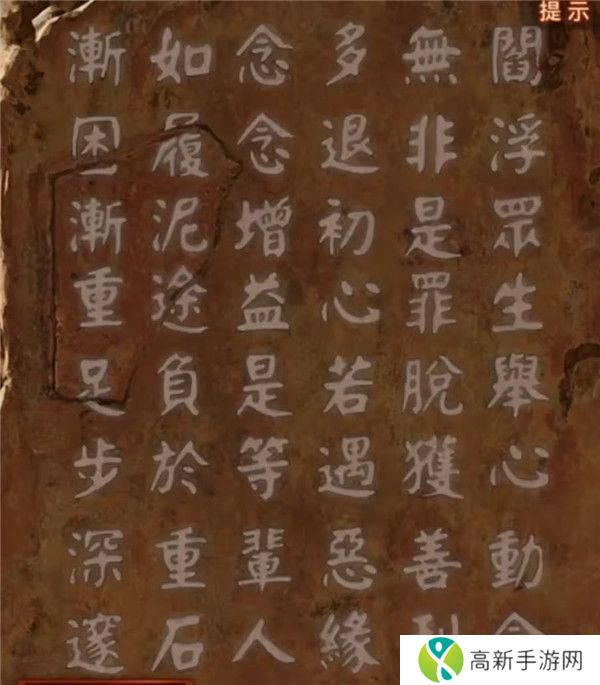 提示
閻浮眾生舉心動念
無非是罪脫獲善利
多退初心若遇惡緣
念念增益是等輩人
如履泥途負於重石
漸困漸重足步深邃
高新手游网